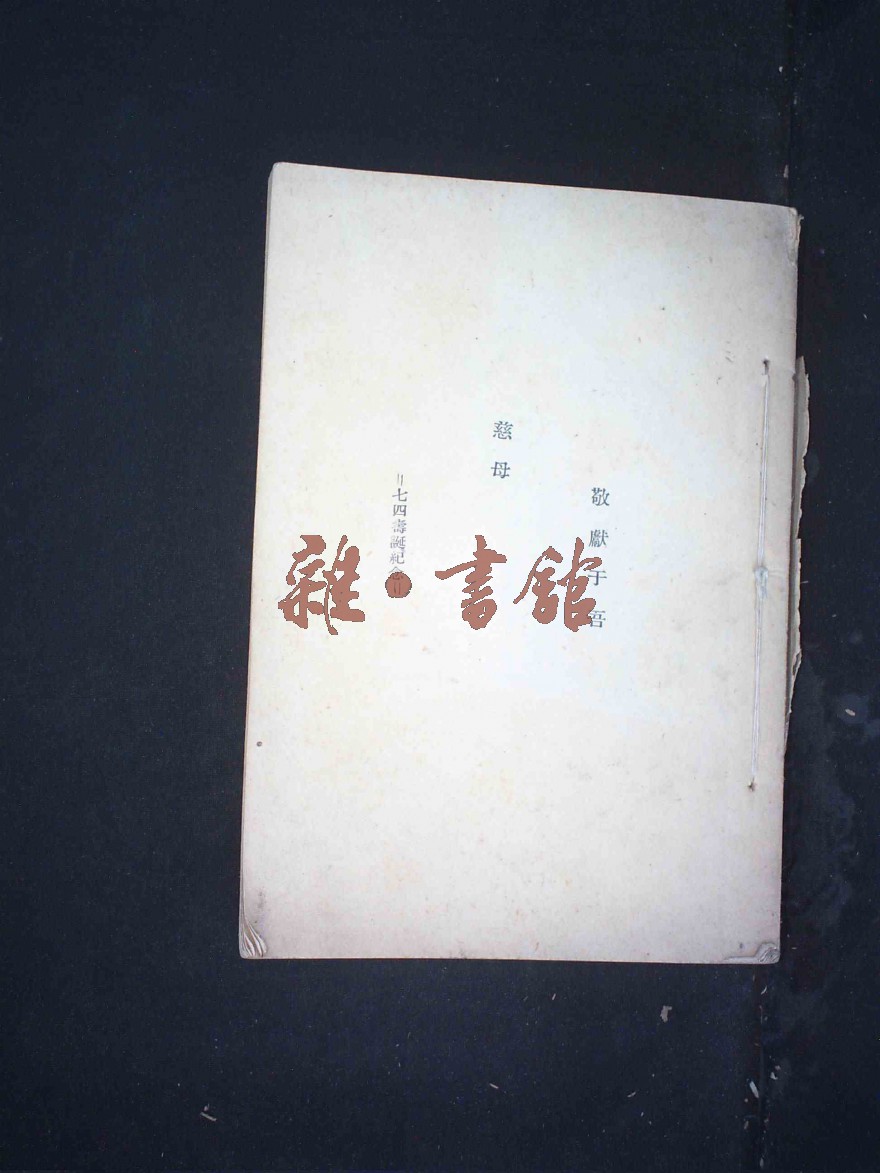 敬獻于吾
慈母
＝七四壽誕紀念＝
雜·書館